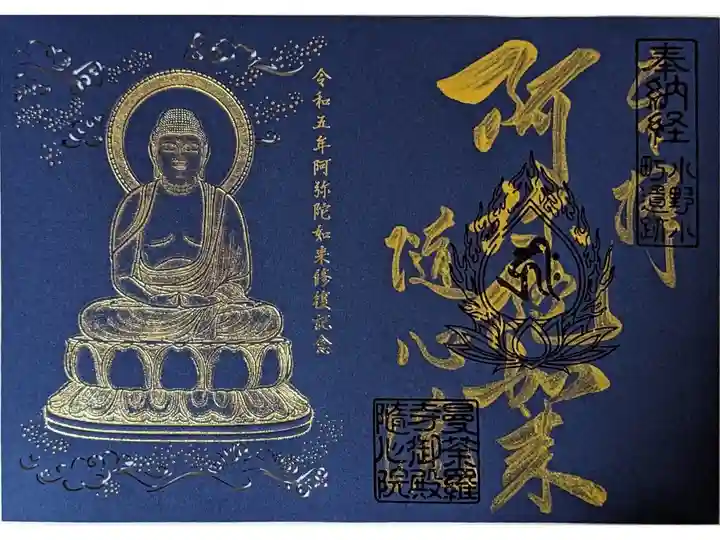 奉拝
奉納経
小野小
町遺跡
阿弥陀如来
随心院
曼荼羅
寺御殿
隨心院
令和五年阿弥陀如来修復記念